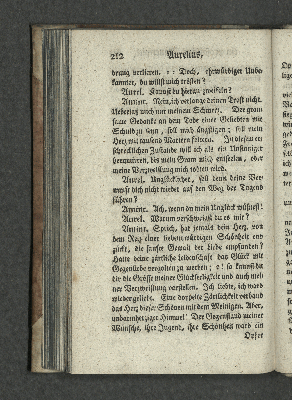 212 Aurelius,
drung verlieren. : : Doch, ehrwürdiger Unbe-
kannter, du willst mich trösten?
Aurel. Kannst du hieran zweifeln?
Amint. Nein, ich verlange deinen Trost nicht.
Ueberlaß mich nur meinem Schmerz. Der grau-
same Gedanke an dem Tode einer Geliebten mit
Schuld zu seyn, soll mich ängstigen; soll mein
Herz mit tausend Martern foltern. In diesem er-
schrecklichen Zustande will ich als ein Unsinniger
herumirren, bis mein Gram mich entseelen, oder
meine Verzweiflung mich tödten wird.
Aurel. Unglücklicher, soll denn deine Ver-
nunft dich nicht wieder auf den Weg der Tugend
führen?
Amint. Ach, wenn du mein Unglück wüßtest!
Aurel. Warum verschweigst du es mir?
Amint. Sprich, hat jemals dein Herz, von
dem Reiz einer liebenswürdigen Schönheit ent-
zückt, die sanfte Gewalt der Liebe empfunden?
Hatte deine zärtliche Leidenschaft das Glück mit
Gegenliebe vergolten zu werden; : : so kannst du
dir die Grösse meiner Glückseligkeit und auch mei-
ner Verzweiflung vorstellen. Ich liebte, ich ward
wieder geliebt. Eine doppelte Zärtlichkeit verband
das Herz dieser Schönen mit dem Meinigen. Aber,
unbarmherziger Himmel! Der Gegenstand meiner
Wünsche, ihre Jugend, ihre Schönheit ward ein
Opfer